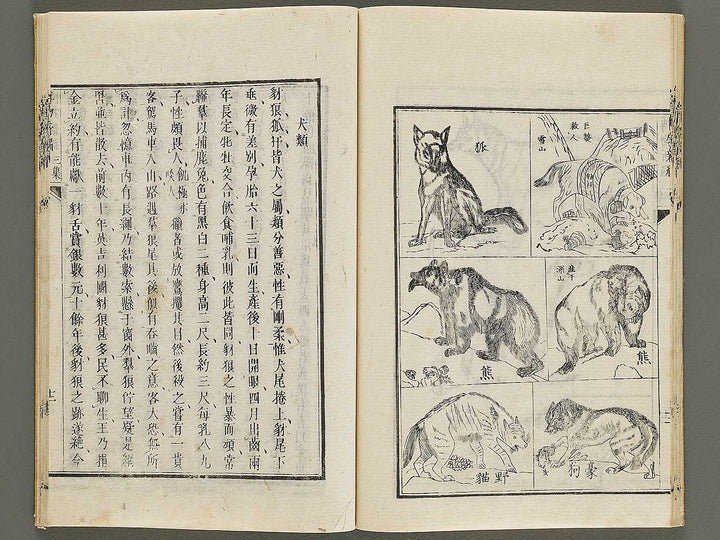 巨獒
救人
雪山
狐
產于
冰山
熊
熊
豪狗
野貓
犬類
豺狼狐犴皆犬之屬類分善惡性有剛柔惟犬尾捲上豺尾下
垂微有差別孕胎六十三日而生產後十日開眼四月出齒兩
年長定牝牡交合飲食哺乳則彼此皆同豺狼之性暴而頑常
聯羣以捕鹿兔色有黑白二種身高二尺長約三尺每乳八九
子性頗畏人飢極亦啖人獵者或放鷹攫其目然後殺之嘗有一貴
客駕馬車入山路遇羣狼尾其後似有吞噬之意客大恐無所
為計忽憶車內有長繩乃結數索懸于窗外羣狼佇望疑是羅
罟並皆散去前數十年英吉利國豺狼甚多民不聊生王乃捐
金立約有能獻一豺舌賞銀數元十餘年後豺狼之跡遂絕今
三集
十二